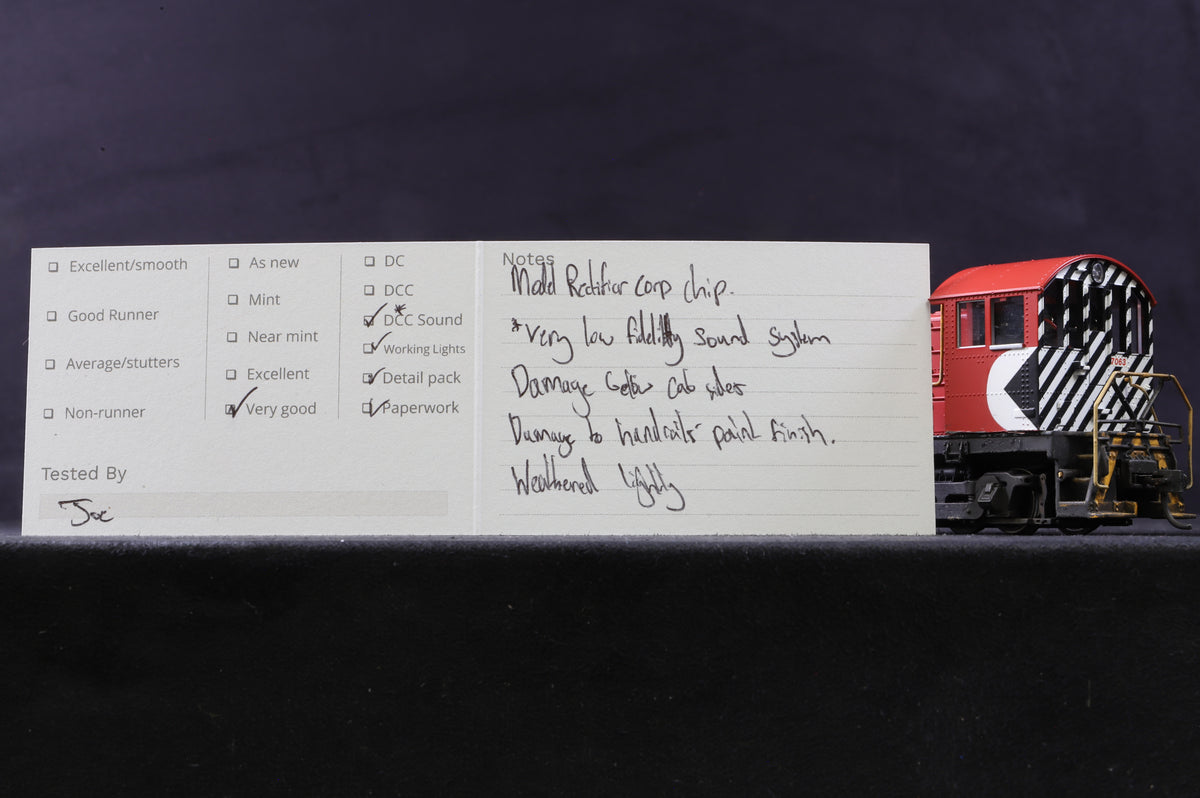 Excellent/smooth
Good Runner
Average/stutters
Non-runner
As new
Mint
Near mint
Excellent
Very good
DC
DCC
* DCC Sound
Working Lights
Detail pack
Paperwork
Tested By
Joe
Notes
Rectifier corp chip.
*very low fidelity sound system
Damage below cab sides
Damage to handrails paint finish.
Weathered lightly
7063